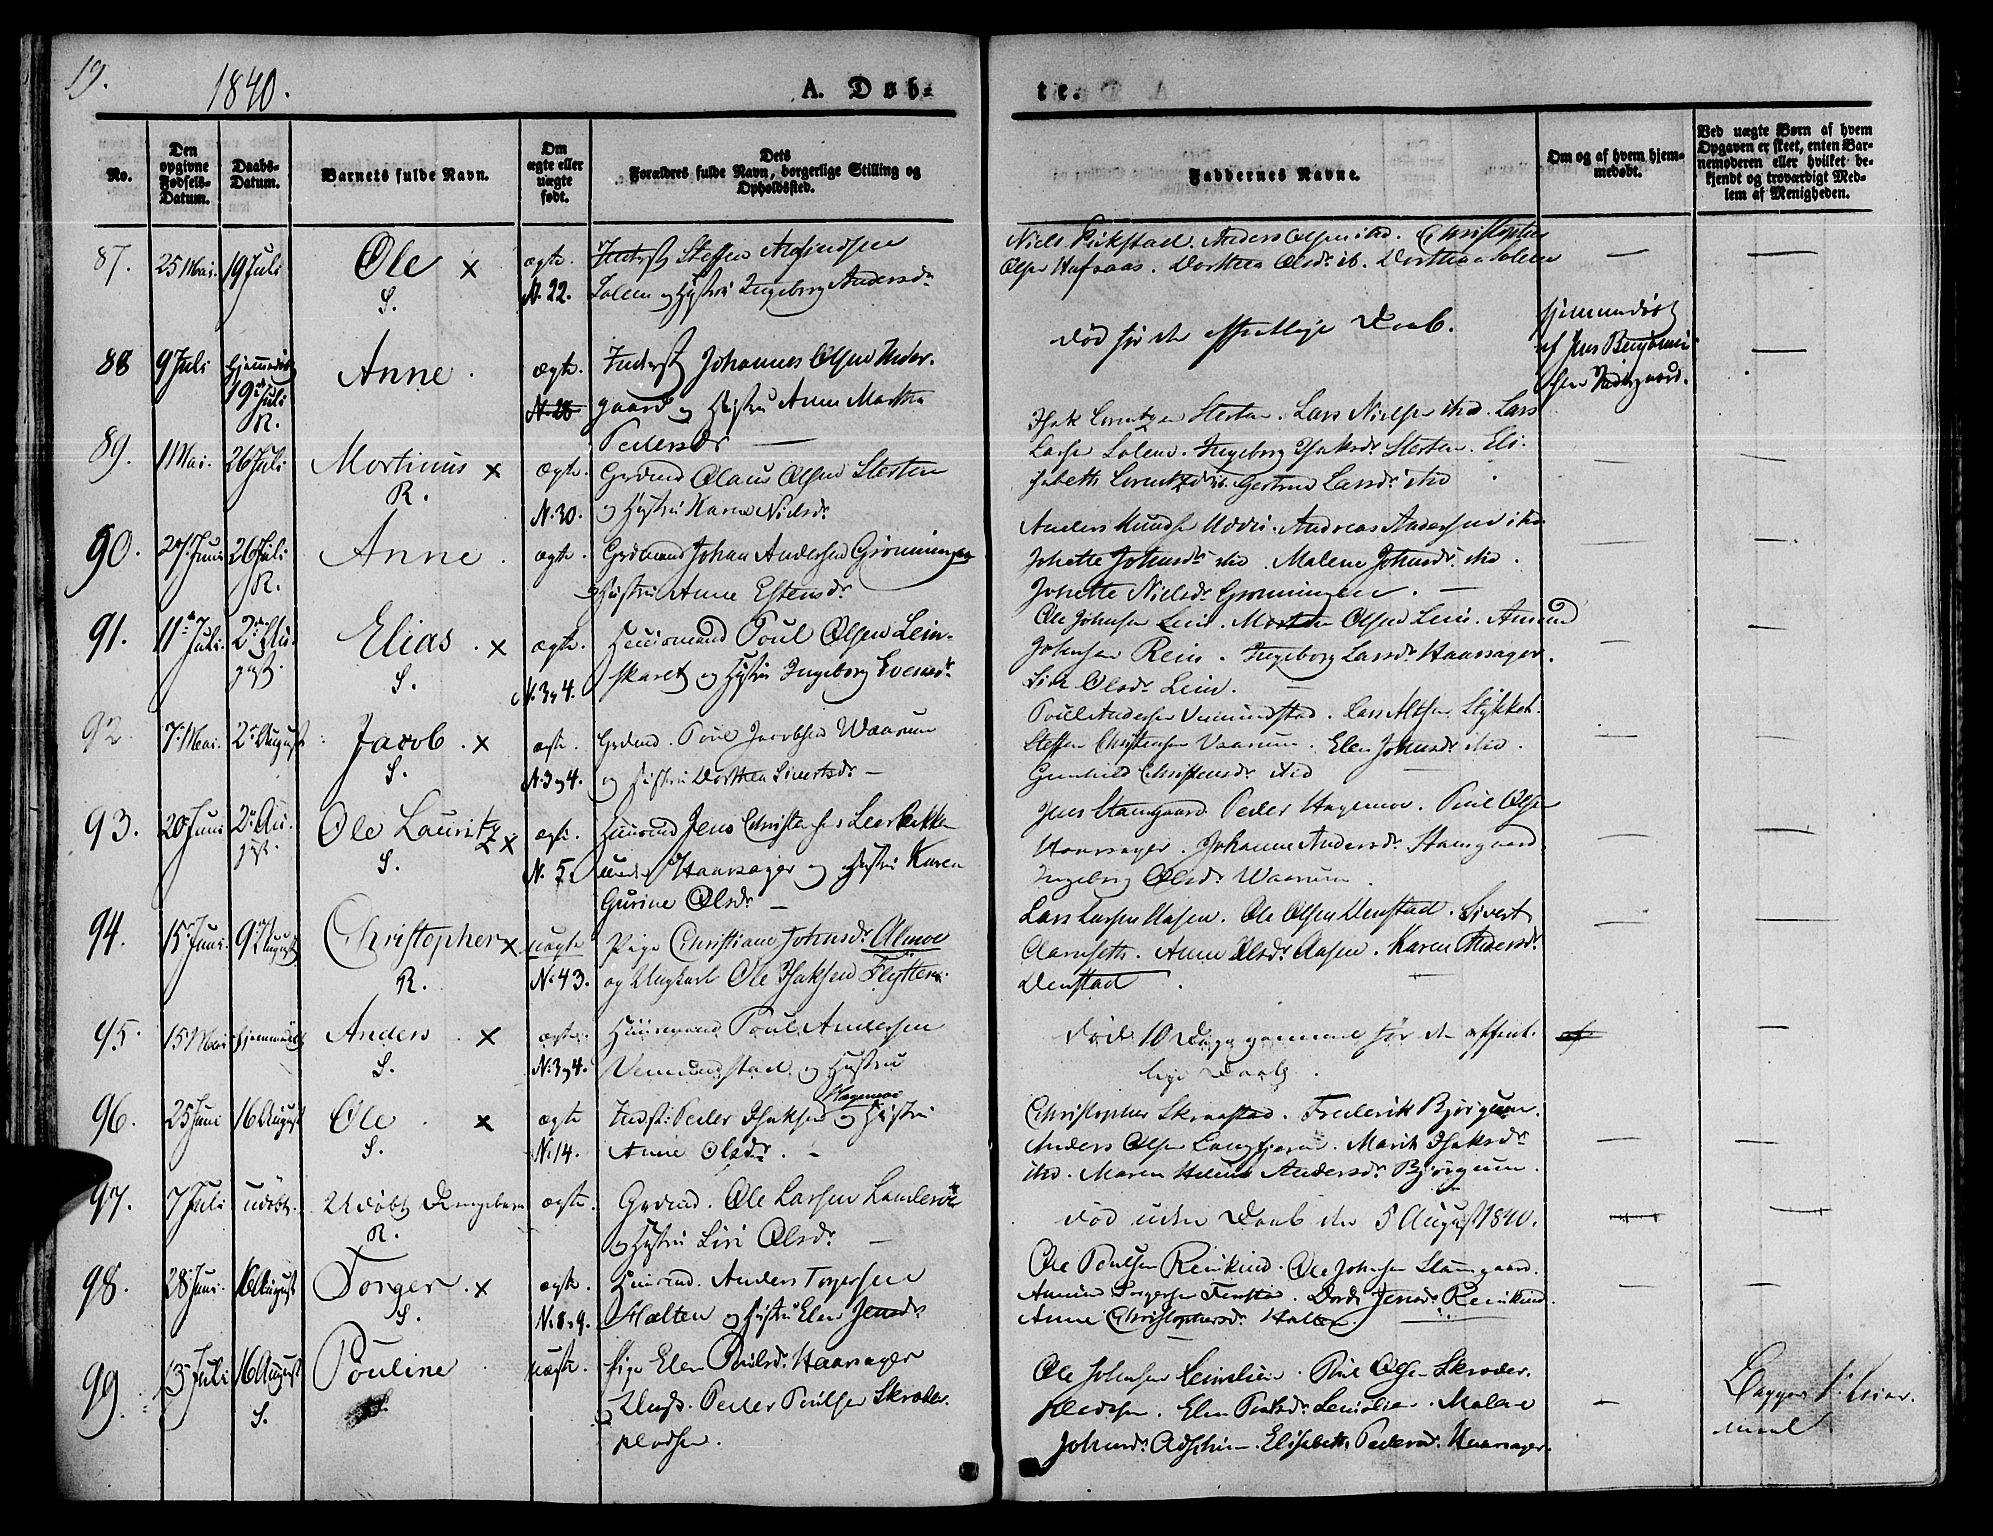 19.
1840.
A. Døb-
te.
No.
Den opgivne Fødsels-Datum.
Daabs-Datum.
Barnets fulde Navn.
Om ægte eller uægte født.
Dets Forældres fulde Navn, borgerlige Stilling og Opholdssted.
Faddernes Navne.
Om og af hvem hjem-
medøbt.
Ved uægte Børn af hvem
Opgaven er skeet, enten Bar-
nemoderen eller hvilket be-
kjendt og troværdigt Med-
lem af Menigheden.
87. 25 Mai. 19 Juli Ole x ægte.
S. N. 22.
Inderst Steffen
Solem og Hustru Ingeborg Andersdr
Niels Anders Olsen ibd. Christopher
Olsen Dorthea Olsdr ib. Dorthea Solem
88 9 Juli Hjemmedøbt 19 Juli R. Anne. ægte.
N. 28
Inderst Johannes Olsen Inder-
gaard og Hustru Anne Martha
Pedersdr
død før den offentlige Daab.
hjemmedøbt
af Jens Benjamin-
sen Indergaard.
89. 1 Mai. 26 Juli Mortinus x ægte.
R. N. 30.
Grdmd Olaus Olsen Sterten
og Hustru Karen Nielsdr
Isak Lorentzen Sterten. Lars Nielsen ibid. Lars
Larsen Solem. Ingeborg Isaksdr Sterten. Eli-
sabeth Lorentzdr ib. Gertrud Larsdr ibid
90. 27 Juni 26 Juli R. Anne. ægte.
Grdmand Johan Andersen Grønningen
og Hustru Anne Estensdr
Anders Andreas Andersen ibd.
Johette Johnsdr ibid. Malene Johnsdr ibid.
Johette Nielsdr Grønningen.
91. 11te Juli. 2den August. Elias. x ægte.
S. N. 3 og 4.
Huusmand Poul Olsen Lein-
skaret og Hustru Ingeborg Evensdr
Ole Johnsen Lein. Morten Olsen Lein. Amund
Johnsen Rein. Ingeborg Larsdr Haarsager.
Siri Olsdr Lein.
92. 7 Mai. 2den August Jacob. x ægte.
S. N. 3 og 4.
Grdmd. Poul Jacobsen Waarum
og Hustru Dorthea Sivertsdr
Poul Andersen Vemundstad. Lars Stykket.
Steffen Christensen Vaarum. Elen Johnsdr ibid.
Gunhild Christensdr ibid
93. 20 Juni 2den August. Ole Lauritz x ægte.
S. N. 5.
Huusmd Jens Christensen Leerbakken
under Haarsager og Hustru Karen
Gurine Olsdr
Jens Stamgaard. Peder Hagemoe. Poul Olsen
Haarsager. Johanna Andersdr Stamgaard.
Ingeborg Olsdr Waarum.
94. 15 Juni. 9de August Christopher x uægte
R. N. 43.
Pige Christiane Johnsdr Almoe
og Ungkarl Ole Isaksen Flytten.
Lars Larsen Aasen. Ole Olsen Denstad. Sivert
Anne Olsdr Aasen. Karen Andersdr
Denstad.
95. 15 Mai hjemmedøbt Anders x ægte.
S. N. 3 og 4.
Huusmand Poul Andersen
Vemundstad og Hustru
død 10 Dage gammel før den offent-
lige Daab.
af
96. 25 Juni 16 August Ole x ægte
S. N. 14.
Hagemoe
Indst: Peder Isaksen og Hustru
Anne Olsdr.
Christopher Skraastad. Frederik Bjørgum.
Anders Olsen Marit Isaksdr
ibd. Maren Helena Andersdr Bjørgum.
97. 7 Juli udøbt. Udøbt Drengebarn ægte.
R.
Grdmd. Ole Larsen
og Hustru Siri Olsdr
død uden Daab den 5 August 1840.
98. 28 Juni. 16 August Torger. x ægte.
S. N. 8 og 9.
Huusmd. Anders Torgersen
Holten og Hustru Elen Jensdr
Ole Poulsen Reinkind. Ole Johnsen Stamgaard.
Dordi Jensdr Reinkind.
Anne Christophersdr Holten.
99. 13 Juli 16 August S. Pouline uægte.
Pige Elen Poulsdr Haarsager
Ungk. Peder Poulsen Skroder
Ole Johnsen Leinslien. Poul Olsen Skroder.
Elen Poulsdr Leinslien. Malene
Johnsdr Elisabeth Pedersdr Haarsager.